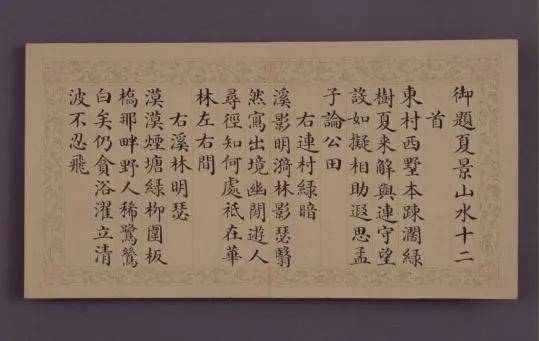 御題夏景山水十二
首
東村西墅本踈濶綠
樹夏来解與連守望
設如擬相助遐思孟
子論公田
右連村綠暗
溪影明漪林影瑟翳
然寫出境幽閒遊人
尋徑知何處祗在華
林左右間
右溪林明瑟
漠漠煙塘綠柳圍板
橋那畔野人稀鷺鷥
白矣仍貪浴濯立清
波不忍飛